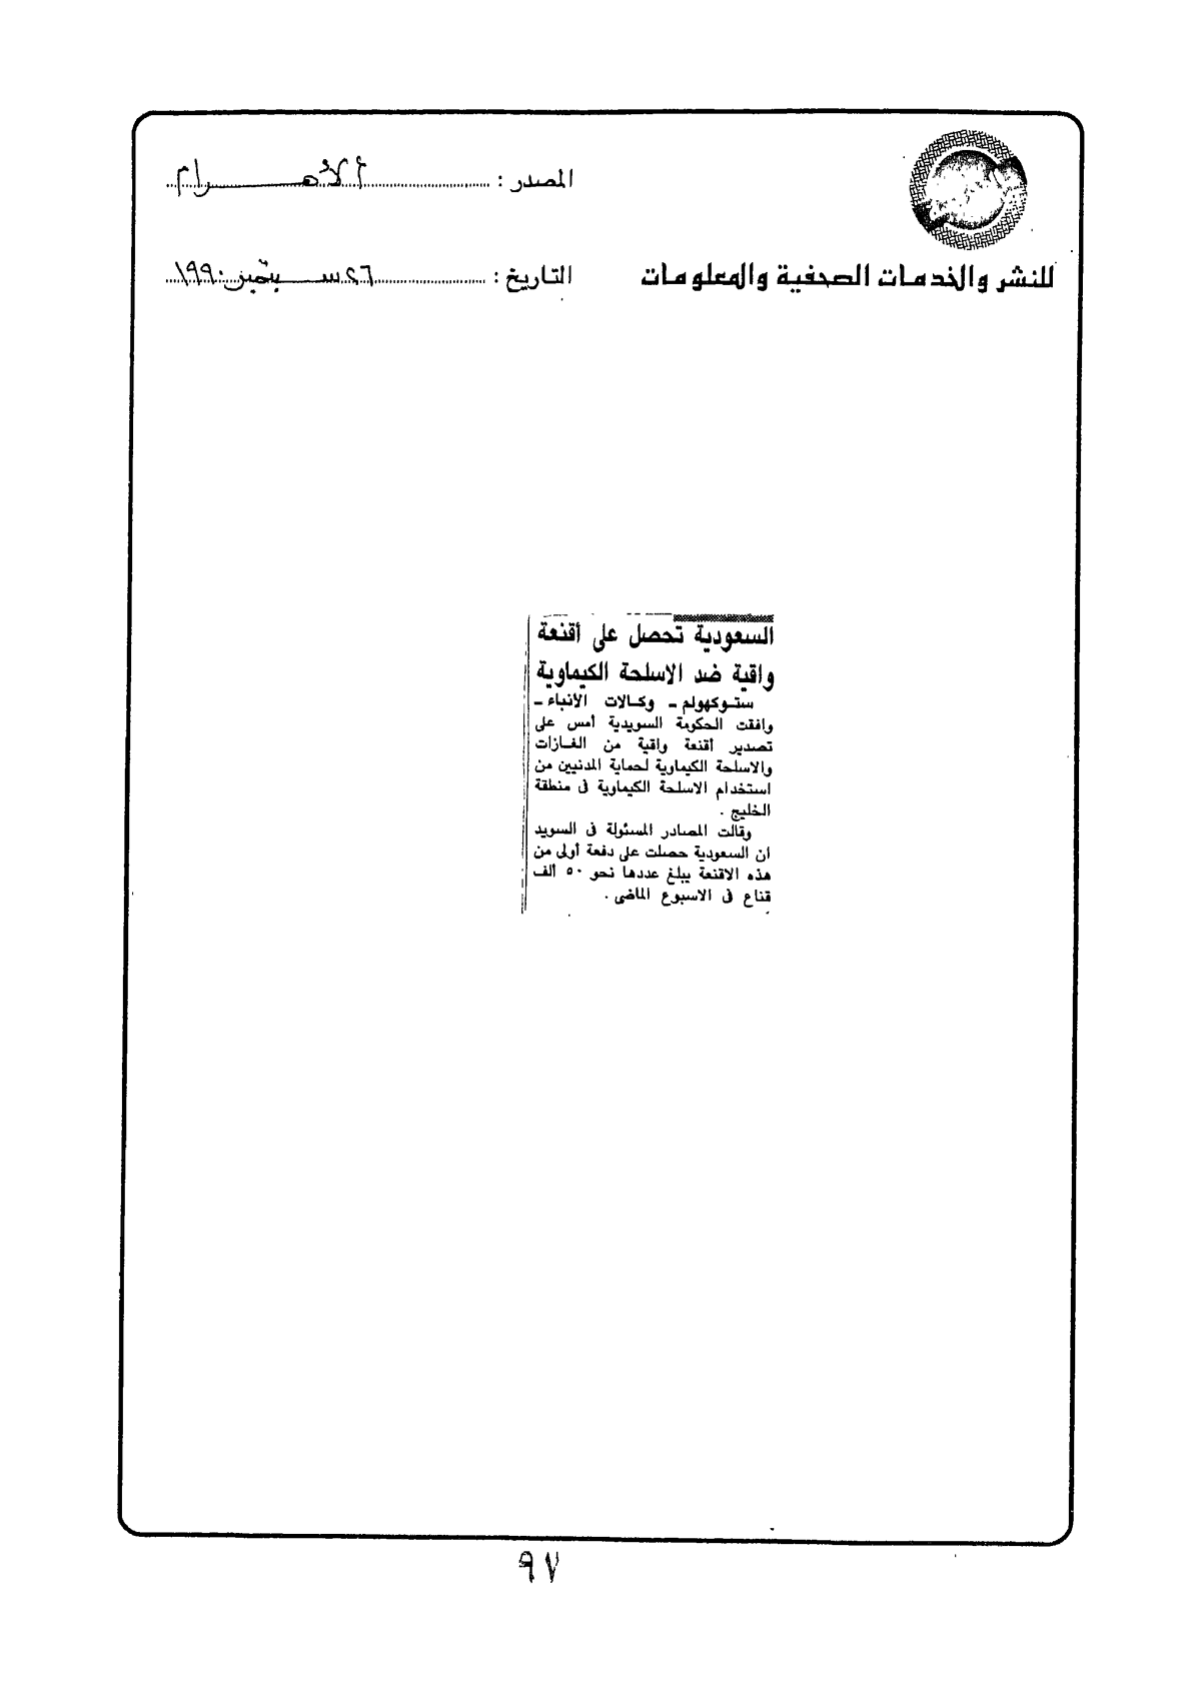 المصدر : الأهـــرام
للنشر والخدمات الصحفية والمعلومات
التاريخ : ٢٦ ســبتمبر ١٩٩٠
السعودية تحصل على أقنعة
واقية ضد الاسلحة الكيماوية
ستوكهولم - وكالات الأنباء -
وافقت الحكومة السويدية أمس على
تصدير أقنعة واقية من الغازات
والاسلحة الكيماوية لحماية المدنيين من
استخدام الاسلحة الكيماوية فى منطقة
الخليج .
وقالت المصادر المسئولة فى السويد
ان السعودية حصلت على دفعة أولى من
هذه الاقنعة يبلغ عددها نحو ٥٠ ألف
قناع فى الاسبوع الماضى .
٩٧